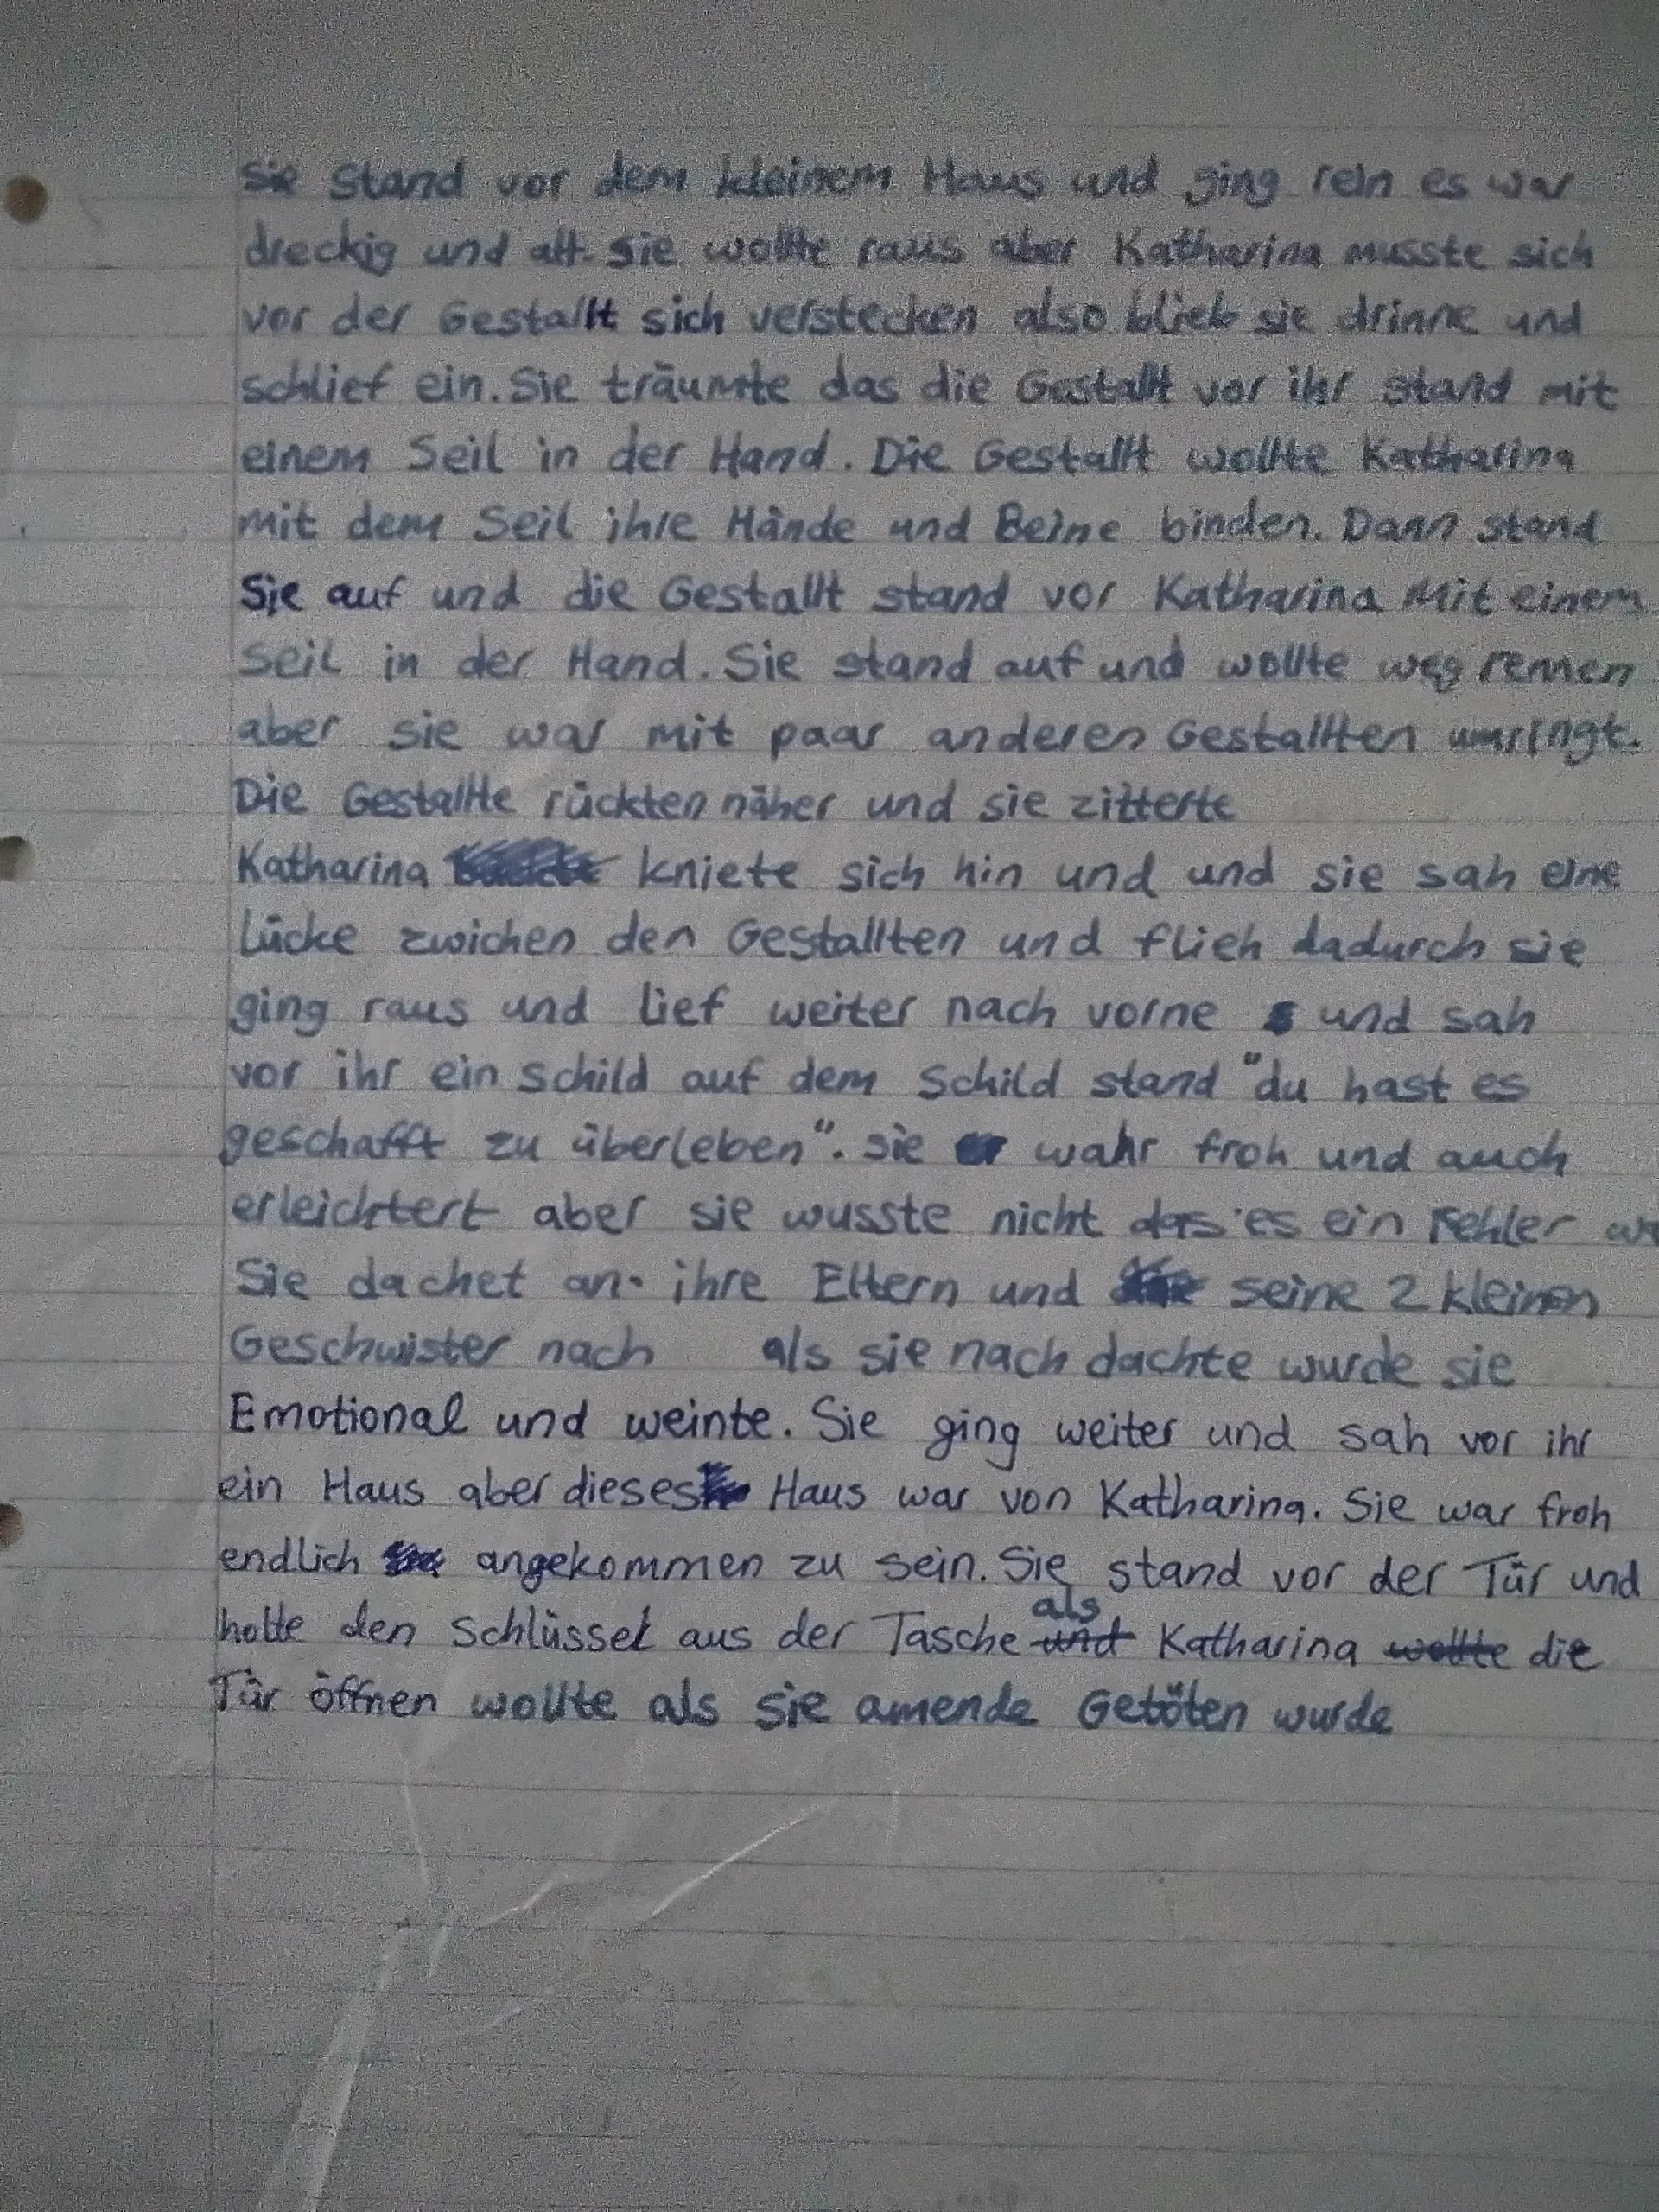 Sie Stand vor dem kleinem Haus und ging rein es war
dreckig und alt. Sie wollte raus aber Katharina musste sich
vor der Gestallt sich verstecken also blieb sie drinne und
schlief ein. Sie träumte das die Gestallt vor ihr stand mit
einem Seil in der Hand. Die Gestallt wollte Katharina
mit dem Seil ihre Hände und Beine binden. Dann stand
Sie auf und die Gestallt stand vor Katharina mit einem
Seil in der Hand. Sie stand auf und wollte weg rennen
aber sie war mit paar anderen Gestallten umringt.
Die Gestallte rückten näher und sie zitterte
Katharina kniete sich hin und und sie sah eine
Lücke zwichen den Gestallten und flieh dadurch sie
ging raus und lief weiter nach vorne und sah
vor ihr ein Schild auf dem Schild stand "du hast es
geschafft zu überleben". Sie wahr froh und auch
erleichtert aber sie wusste nicht das es ein Fehler
Sie dachet an ihre Eltern und seine 2 kleinen
Geschwister nach als sie nach dachte wurde sie
Emotional und weinte. Sie ging weiter und sah vor ihr
ein Haus aber dieses Haus war von Katharina. Sie war froh
endlich angekommen zu sein. Sie stand vor der Tür und
holte den Schlüssel aus der Tasche als Katharina die
Tür öffnen wollte als sie amende Getöten wurde